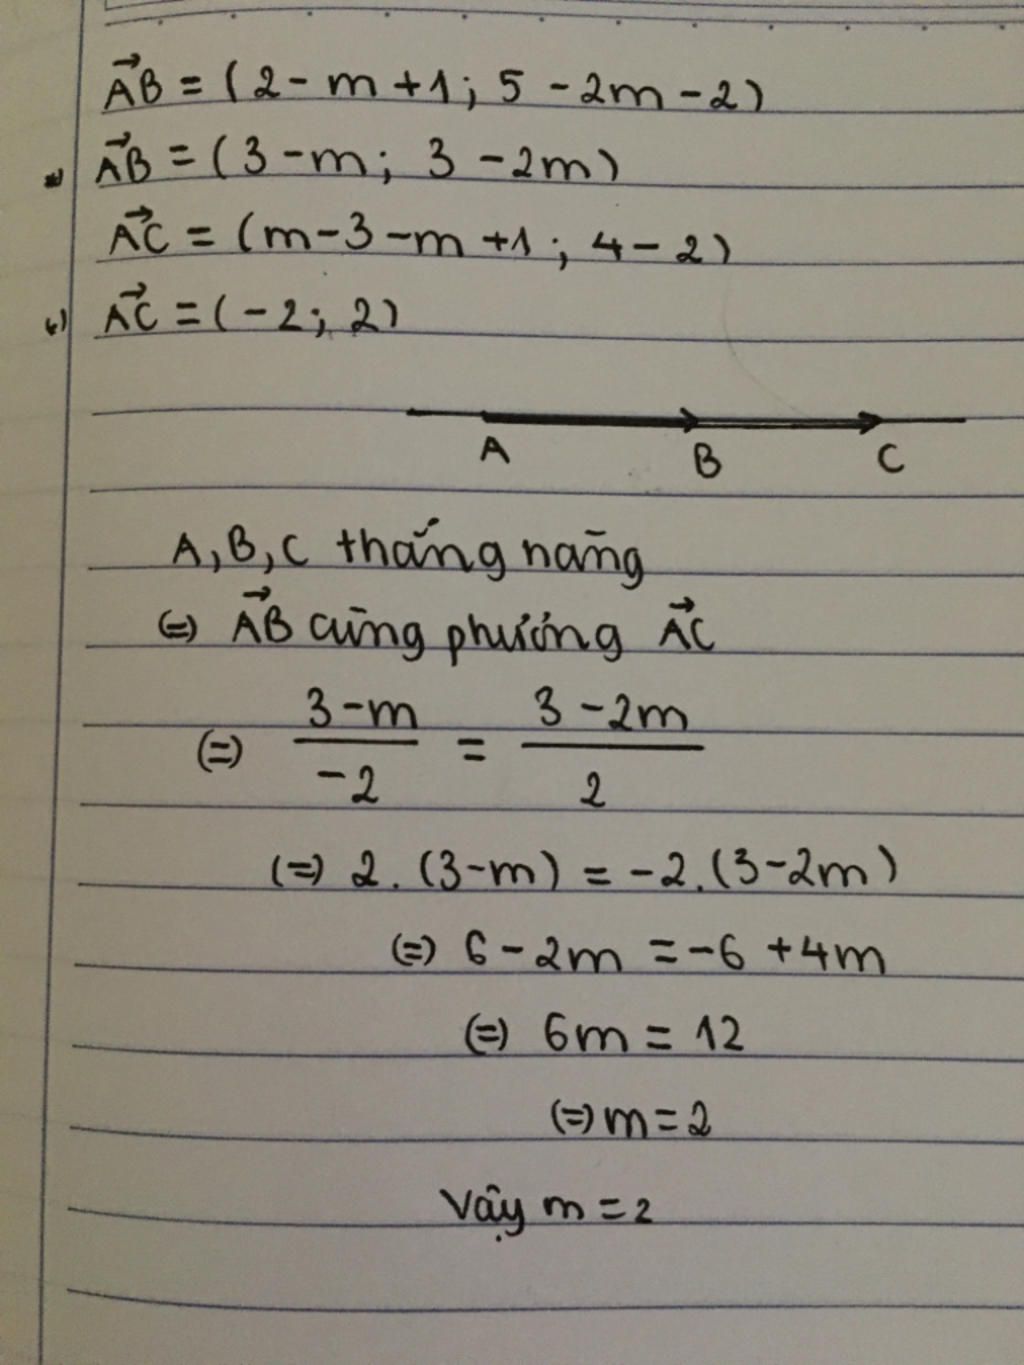 AB→ = (2 - m + 1; 5 - 2m - 2)
a) AB→ = (3 - m; 3 - 2m)
AC→ = (m - 3 - m + 1; 4 - 2)
AC→ = (-2; 2)
A B C
A, B, C thẳng hàng
(=) AB→ cùng phương AC→
(=) (3 - m)/(-2) = (3 - 2m)/2
(=) 2.(3 - m) = -2.(3 - 2m)
(=) 6 - 2m = -6 + 4m
(=) 6m = 12
(=) m = 2
Vậy m = 2